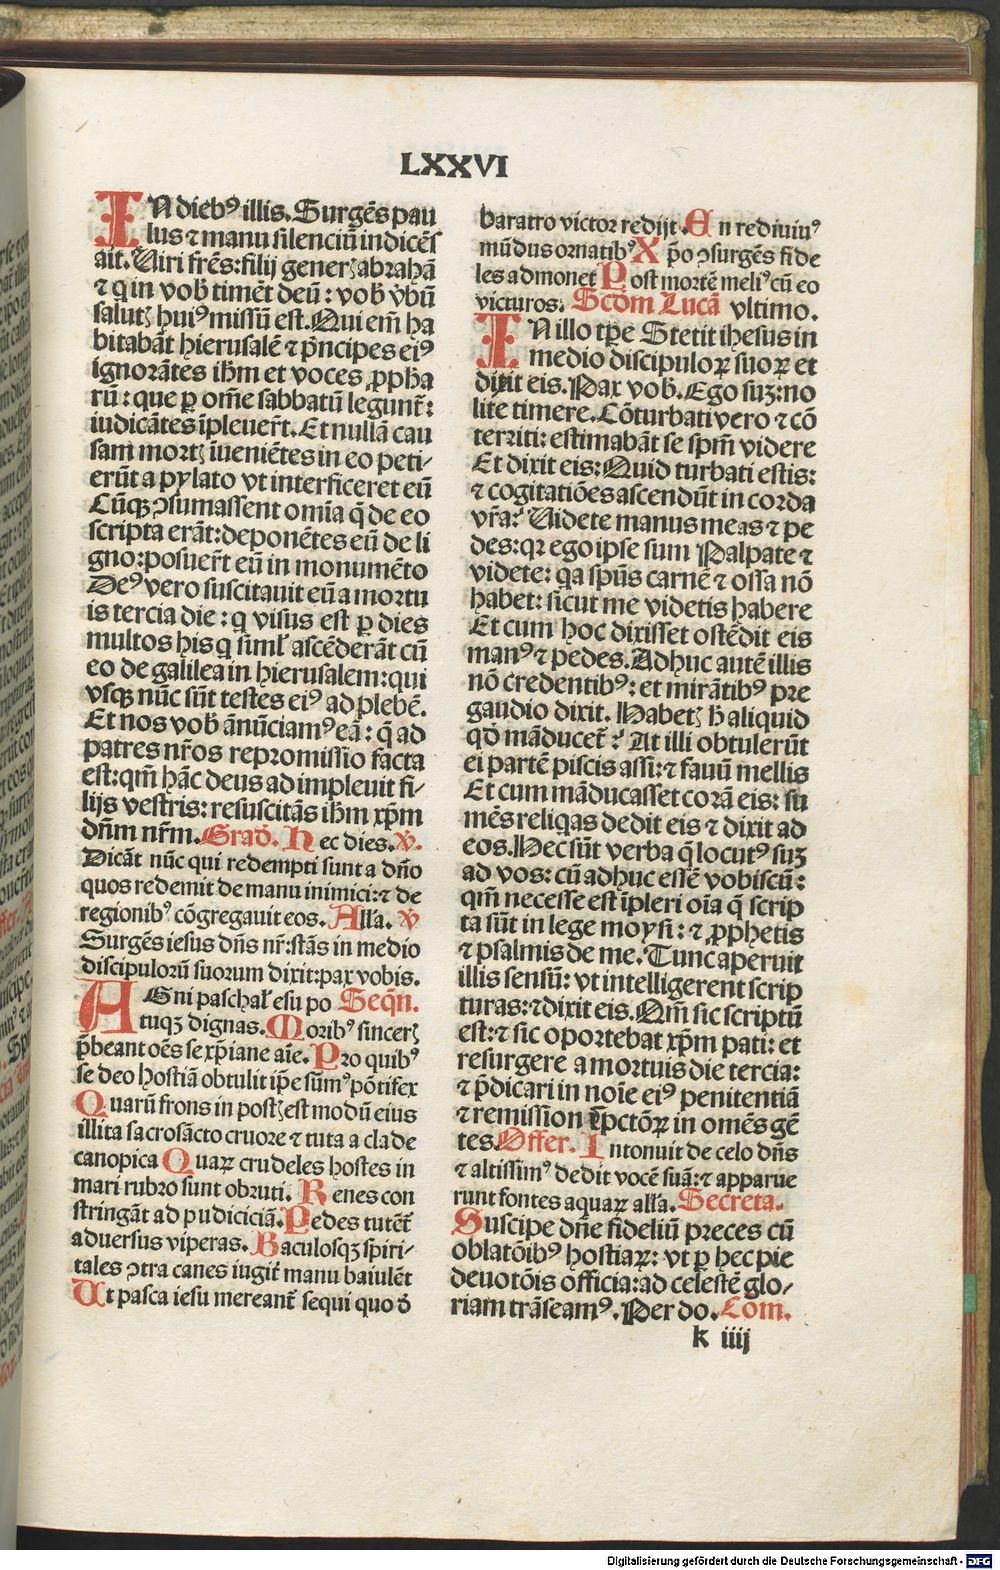 LXXVI
IN dieb⁹ illis. Surgēs pau
lus ⁊ manu silenciū indicēs
ait. Uiri frēs: filij generꝫ abrahā
⁊ q in vob̄ timēt deū: vob̄ v̄bū
salutꝫ hui⁹ missū est. Qui em̄ ha
bitabāt hierusalē ⁊ p̄ncipes ei⁹
ignorātes ihm̄ et voces ꝓpha
rū: que ꝑ om̄e sabbatū legunt̄:
iudicātes īpleuer̄t. Et nullā cau
sam mortꝫ īueniētes in eo peti⸗
erūt a pylato vt interficeret eū
Cūqꝫ ꝯsumassent omīa q̄ de eo
scripta erāt: deponētes eū de li
gno: posuer̄t eū in monumēto
De⁹ vero suscitauit eū a mortu
is tercia die: q visus est ꝑ dies
multos his q siml̄ ascēderāt cū
eo de galilea in hierusalem: qui
vsqꝫ nūc sūt testes ei⁹ ad plebē.
Et nos vob̄ ānūciam⁹ eā: q̄ ad
patres nr̄os repromissio facta
est: qm̄ hāc deus adimpleuit fi⸗
lijs vestris: resuscitās ihm̄ xp̄m
dn̄m nr̄m. Grad̄. Hec dies. v̄.
Dicāt nūc qui redempti sunt a dn̄o
quos redemit de manu inimici: ⁊ de
regionib⁹ cōgregauit eos. Alla. v̄
Surgēs iesus dn̄s nr̄: stās in medio
discipulorū suorum dixit: pax vobis.
AGni paschal̄ esu po Seqn̄.
tuqꝫ dignas. Morib⁹ sincerꝫ
p̄beant oēs se xp̄iane aīe. Pro quib⁹
se deo hostiā obtulit ip̄e sūm⁹ pōtifex
Quarū frons in postꝫ est modū eius
illita sacrosācto cruore ⁊ tuta a clade
canopica Quaꝝ crudeles hostes in
mari rubro sunt obruti. Renes con
stringāt ad pudiciciā. Pedes tutēt̄
aduersus viperas. Baculosqꝫ spiri⸗
tales ꝯtra canes iugit̄ manu baiulēt
Ut pasca iesu mereant̄ sequi quo d̄
baratro victor redijt. En rediuiu⁹
mūdus ornatib⁹ Xp̄o ꝯsurgēs fide
les admonet Post mortē meli⁹ cū eo
victuros. Scdm Lucā vltimo.
IN illo tp̄e Stetit ihesus in
medio discipuloꝝ suoꝝ et
dixit eis. Pax vob̄. Ego suꝫ: no
lite timere. Cōturbati vero ⁊ cō
territi: estimabāt se spm̄ videre
Et dixit eis: Quid turbati estis:
⁊ cogitatiōes ascendūt in corda
vr̄a? Uidete manus meas ⁊ pe
des: qꝛ ego ipse sum Palpate ⁊
videte: qa spūs carnē ⁊ ossa nō
habet: sicut me videtis habere
Et cum hoc dixisset ostēdit eis
man⁹ ⁊ pedes. Adhuc autē illis
nō credentib⁹: et mirātib⁹ pre
gaudio dixit. Habetꝫ h̄ aliquid
qd̄ māducet̄? At illi obtulerūt
ei partē piscis assi: ⁊ fauū mellis
Et cum māducasset corā eis: su
mēs reliqas dedit eis ⁊ dixit ad
eos. Hec sūt verba q̄ locut⁹ suꝫ
ad vos: cū adhuc essē vobiscū:
qm̄ necesse est īpleri oīa q̄ scrip
ta sūt in lege moysi: ⁊ ꝓphetis
⁊ psalmis de me. Tunc aperuit
illis sensū: vt intelligerent scrip
turas: ⁊ dixit eis. Qm̄ sic scriptū
est: ⁊ sic oportebat xp̄m pati: et
resurgere a mortuis die tercia:
⁊ p̄dicari in noīe ei⁹ penitentiā
⁊ remission pctōꝝ in omēs gē
tes. Offer. Intonuit de celo dn̄s
⁊ altissim⁹ dedit vocē suā: ⁊ apparue
runt fontes aquaꝝ all̄a. Secreta.
Suscipe dn̄e fideliū preces cū
oblatōib⁹ hostiaꝝ: vt ꝑ hec pie
deuotōis officia: ad celestē glo⸗
riam trāseam⁹. Per do. Com.
k iiij
Digitalisierung gefördert durch die Deutsche Forschungsgemeinschaft - DFG